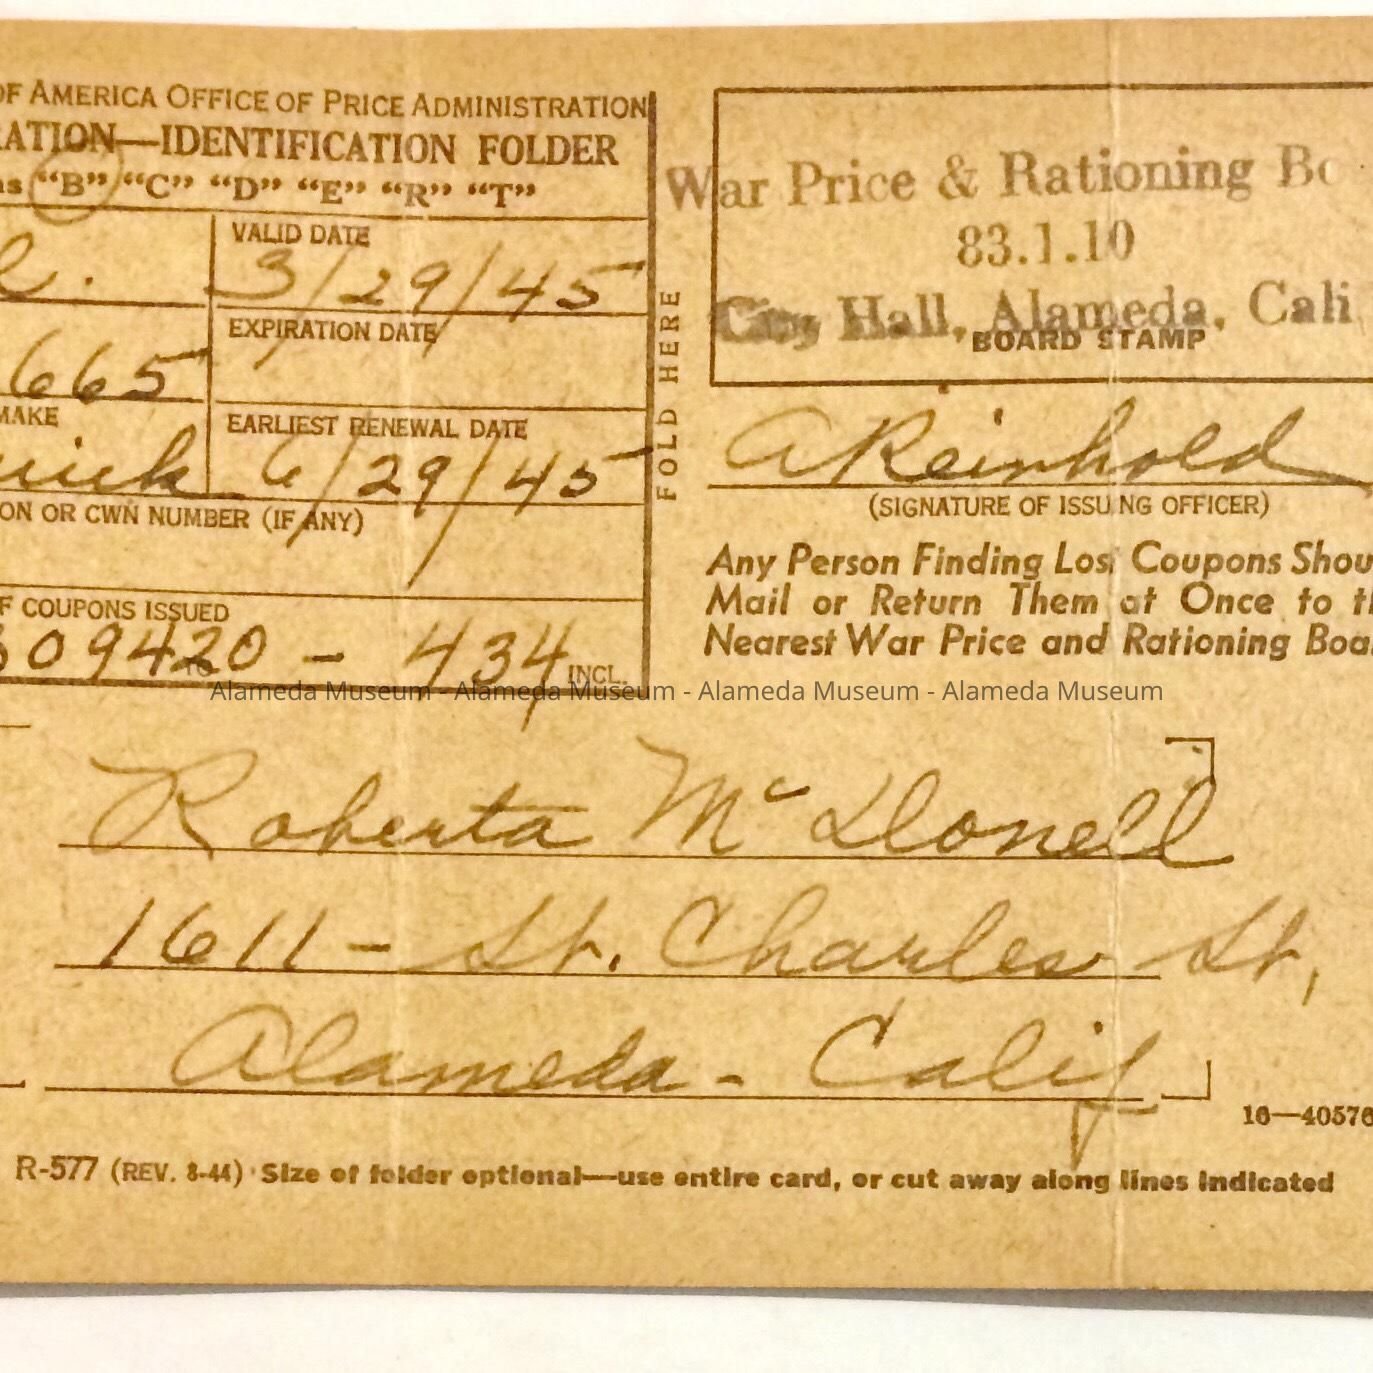 OF AMERICA OFFICE OF PRICE ADMINISTRATION
RATION—IDENTIFICATION FOLDER
ns “B” “C” “D” “E” “R” “T”
VALID DATE
3/29/45
EXPIRATION DATE
665
MAKE
EARLIEST RENEWAL DATE
6/29/45
ON OR CWN NUMBER (IF ANY)
F COUPONS ISSUED
09420 - 434 INCL.
FOLD HERE
War Price & Rationing Bo
83.1.10
City Hall, Alameda, Cali
BOARD STAMP
A Reinhold
(SIGNATURE OF ISSUING OFFICER)
Any Person Finding Lost Coupons Shou
Mail or Return Them at Once to th
Nearest War Price and Rationing Boa
Alameda Museum - Alameda Museum - Alameda Museum - Alameda Museum
Roberta McDonell
1611 - St. Charles St,
Alameda - Calif
16—40576
R-577 (REV. 8-44) Size of folder optional—use entire card, or cut away along lines indicated